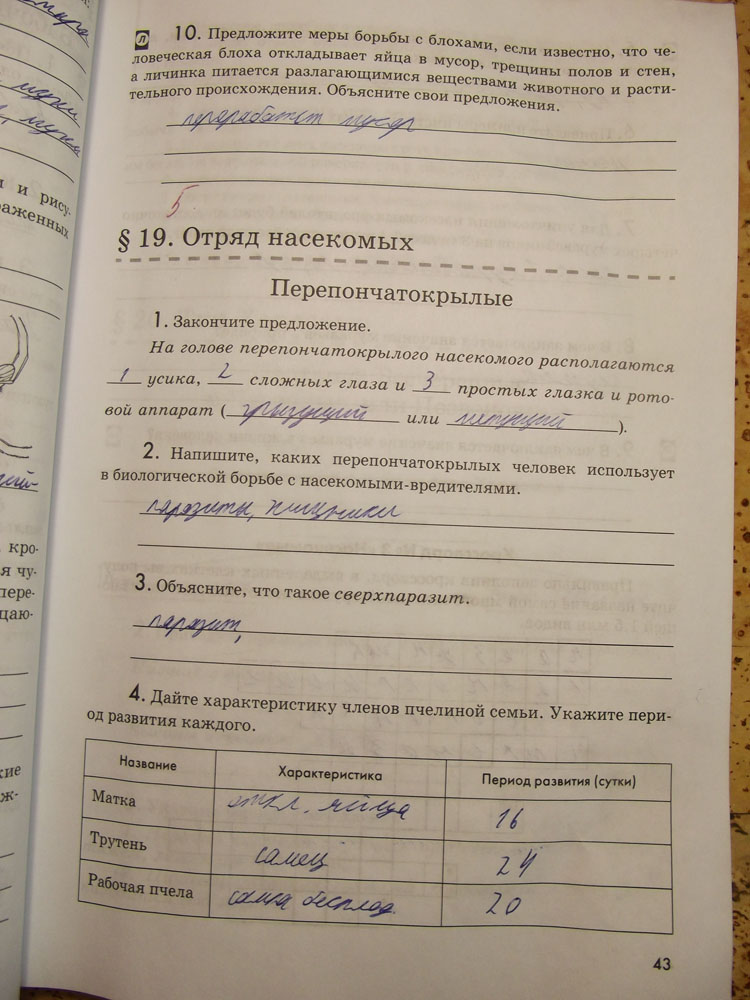 л 10. Предложите меры борьбы с блохами, если известно, что че-
ловеческая блоха откладывает яйца в мусор, трещины полов и стен,
а личинка питается разлагающимися веществами животного и расти-
тельного происхождения. Объясните свои предложения.
5
§ 19. Отряд насекомых
Перепончатокрылые
1. Закончите предложение.
На голове перепончатокрылого насекомого располагаются
1 усика, 2 сложных глаза и 3 простых глазка и рото-
вой аппарат (грызущий или ).
2. Напишите, каких перепончатокрылых человек использует
в биологической борьбе с насекомыми-вредителями.
паразиты, хищники
3. Объясните, что такое сверхпаразит.
паразит,
4. Дайте характеристику членов пчелиной семьи. Укажите пери-
од развития каждого.
Название Характеристика Период развития (сутки)
Матка откл. яйца 16
Трутень самец 24
Рабочая пчела самка бесплод. 20
43
и рису-
раженных
кро-
я чу-
пере-
цаю-
кие
ж-